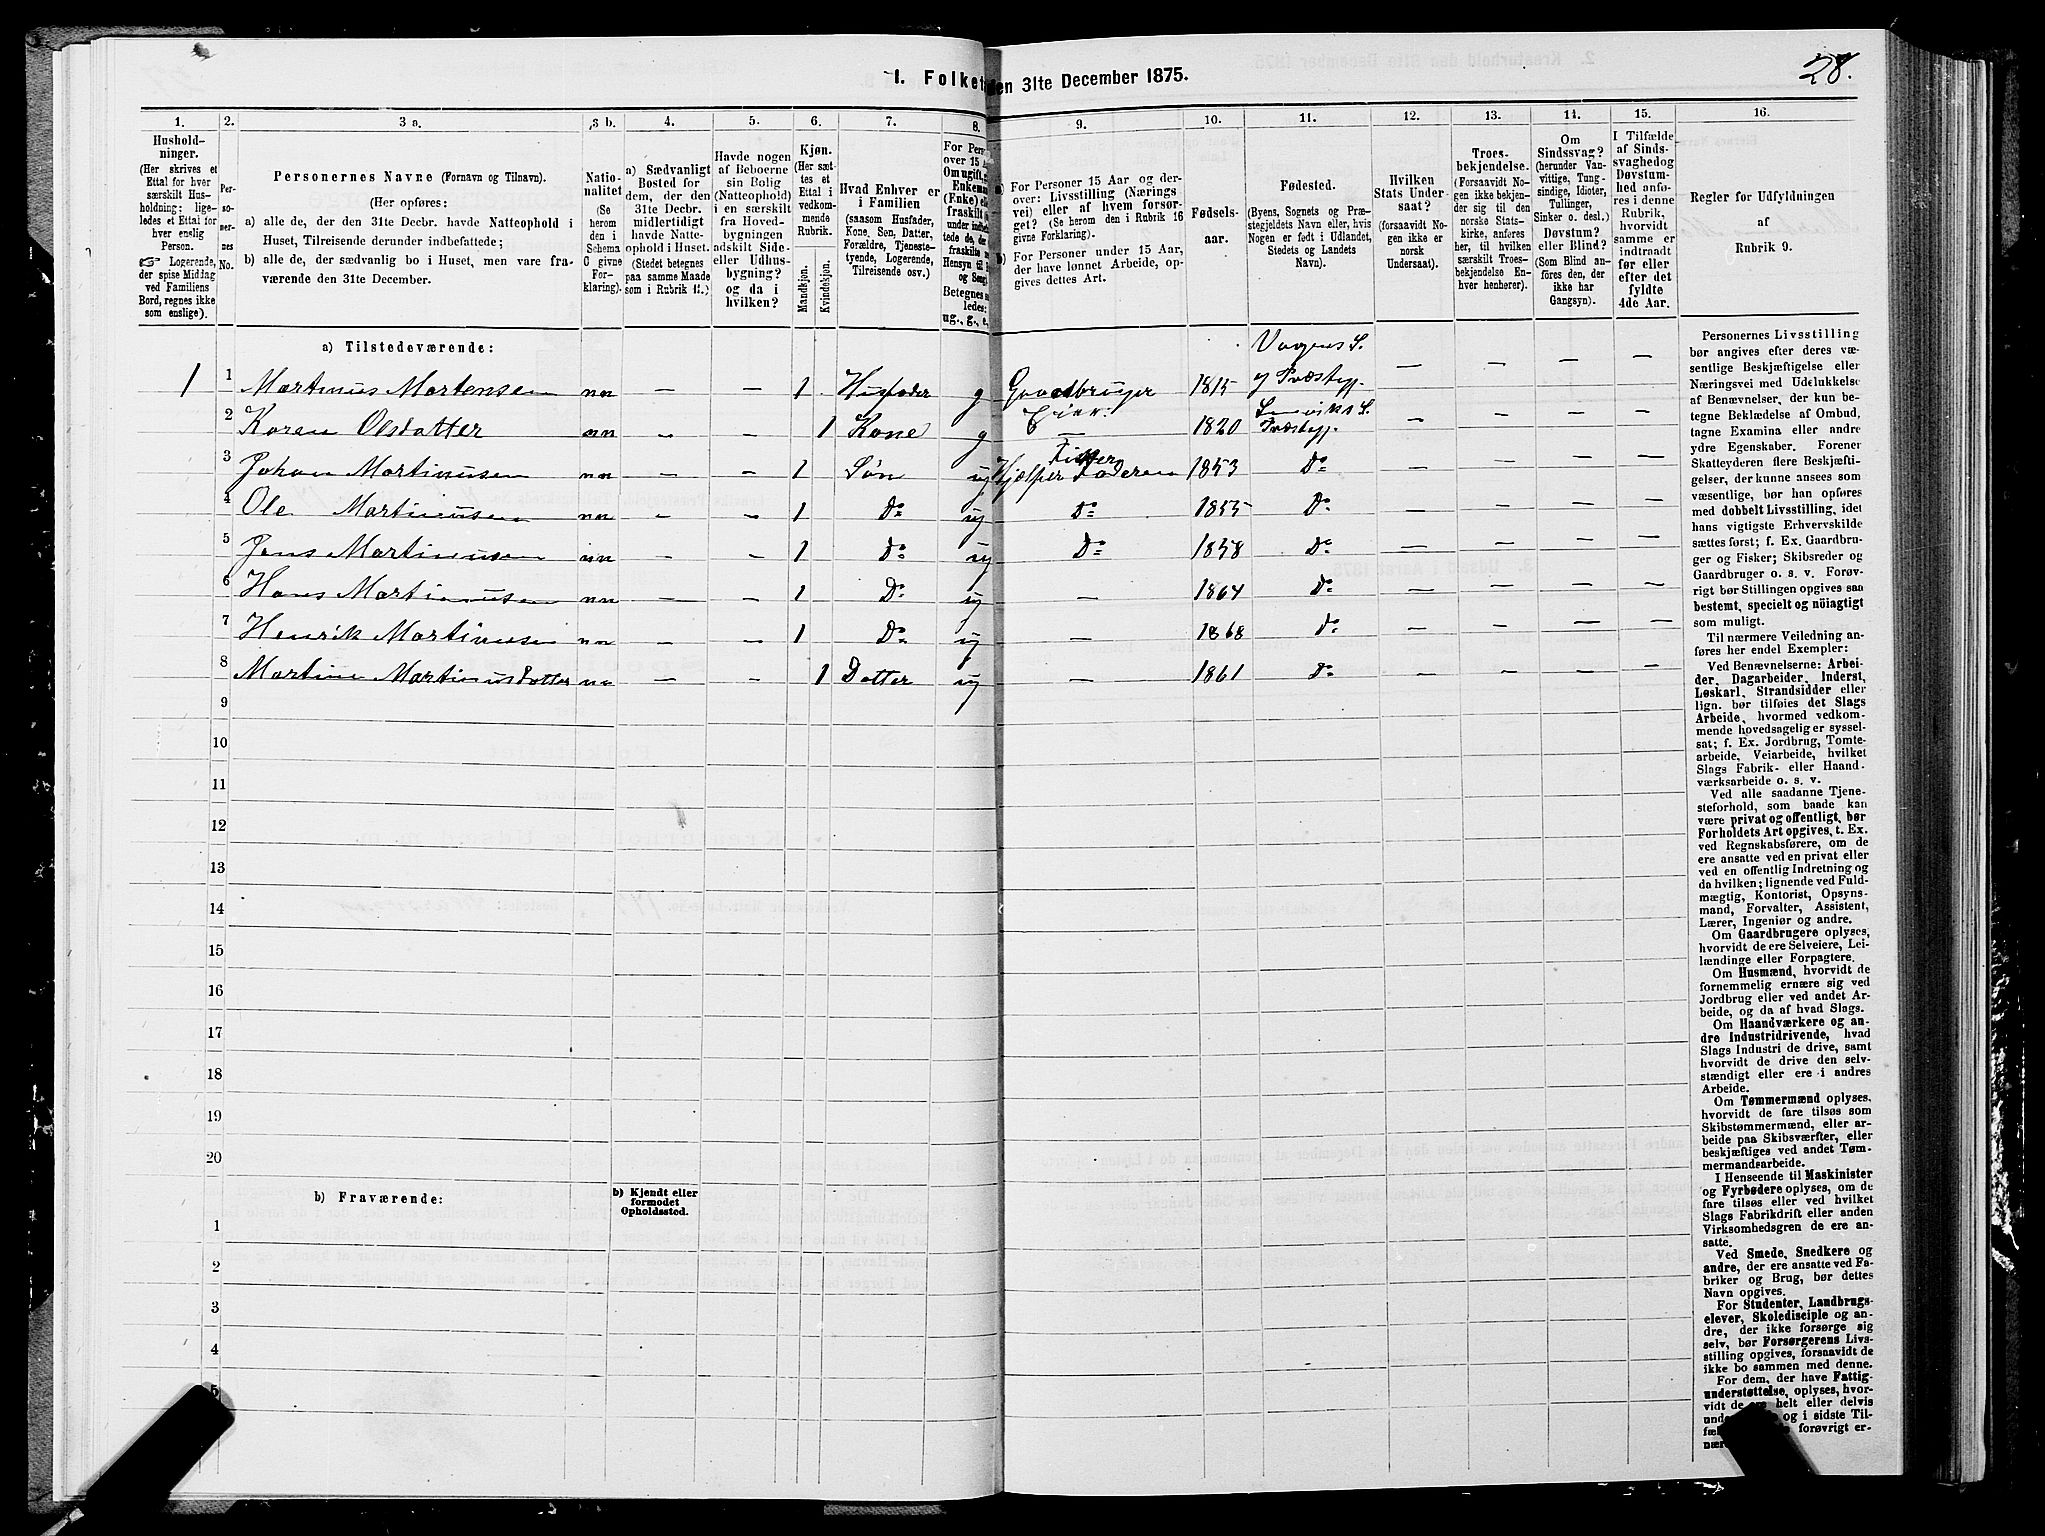 28.
1. Folket
den 31te December 1875.
1.
Hushold-
ninger.
(Her skrives et
Ettal for hver
særskilt Hus-
holdning; lige-
ledes et Ettal for
hver enslig
Person.
Logerende,
der spise Middag
ved Familiens
Bord, regnes ikke
som enslige).
2.
Per-
so-
ner-
nes
No.
3 a.
Personernes Navne (Fornavn og Tilnavn).
(Her opføres:
a) alle de, der den 31te Decbr. havde Natteophold i
Huset, Tilreisende derunder indbefattede;
b) alle de, der sædvanlig bo i Huset, men vare fra-
værende den 31te December.
3 b.
Natio-
nalitet
(Se
herom
den i
Schema
C givne
For-
klaring).
4.
a) Sædvanligt
Bosted for
dem, der den
31te Decbr.
midlertidigt
havde Natte-
ophold i Huset.
(Stedet betegnes
paa samme Maade
som i Rubrik 11.)
5.
Havde nogen
af Beboerne
sin Bolig
(Natteophold)
i en særskilt
fra Hoved-
bygningen
adskilt Side-
eller Udhus-
bygning?
og da i
hvilken?
6.
Kjøn.
(Her sæt-
tes et
Ettal i
vedkom-
mende
Rubrik.
Mandkjøn.
Kvindekjøn.
7.
Hvad Enhver er
i Familien
(saasom Husfader,
Kone, Søn, Datter,
Forældre, Tjeneste-
tyende, Logerende,
Tilreisende osv.)
8.
For Pers
over 15 Aa
Om ugift, g
Enkema
(Enke) ell
fraskilt
ug., g., e.
9.
a) For Personer 15 Aar og der-
over: Livsstilling (Nærings
vei) eller af hvem forsør-
get? (Se herom den i Rubrik 16
givne Forklaring).
b) For Personer under 15 Aar,
der have lønnet Arbeide, op-
gives dettes Art.
10.
Fødsels-
aar.
11.
Fødested.
(Byens, Sognets og Præ-
stegjeldets Navn eller, hvis
Nogen er født i Udlandet,
Stedets og Landets
Navn).
12.
Hvilken
Stats Under-
saat?
(forsaavidt No-
gen ikke er
norsk
Undersaat).
13.
Troes-
bekjendelse.
(Forsaavidt No-
gen ikke bekjen-
der sig til den
norske Stats-
kirke, anføres
her, til hvilken
særskilt Troes-
bekjendelse En-
hver henhører).
14.
Om
Sindssvag?
(herunder Van-
vittige, Tung-
sindige, Idioter,
Tullinger,
Sinker o. desl.)
Døvstum?
eller Blind?
(Som Blind an-
føres den, der
ikke har
Gangsyn).
15.
I Tilfælde
af Sinds-
svaghed og
Døvstum-
hed anfø-
res i denne
Rubrik,
hvorvidt
samme er
indtraadt
før eller
efter det
fyldte
4de Aar.
16.
Regler for Udfyldningen
af
Rubrik 9.
a) Tilstedeværende:
1 1 Martinus Mortensen nn — — 1 Husfader g Gaardbruger 1815 Vagens S. og Præstegj. — — — —
2 Karen Olsdatter nn — — 1 Kone g — 1820 S. Præstegj. — — — —
3 Johan Martinusen nn — — 1 Søn ug Hjælper Faderen 1853 Do — — — —
4 Ole Martinusen nn — — 1 Do ug Do 1855 Do — — — —
5 Jens Martinusen nn — — 1 Do ug Do 1858 Do — — — —
6 Hans Martinusen nn — — 1 Do ug — 1864 Do — — — —
7 Henrik Martinusen nn — — 1 Do ug — 1868 Do — — — —
8 Martine Martinusdatter nn — — 1 Datter ug — 1861 Do — — — —
9
10
11
12
13
14
15
16
17
18
19
20
b) Fraværende:
b) Kjendt eller
formodet
Opholdssted.
1
2
3
4
5
Personernes Livsstilling
bør angives efter deres væ-
sentlige Beskjæftigelse eller
Næringsvei med Udelukkelse
af Benævnelser, der kun be-
tegne Beklædelse af Ombud,
tagne Examina eller andre
ydre Egenskaber. Forener
Skatteyderen flere Beskjæfti-
gelser, der kunne ansees som
væsentlige, bør han opføres
med dobbelt Livsstilling, idet
hans vigtigste Erhvervskilde
sættes først; f. Ex. Gaardbru-
ger og Fisker; Skibsreder og
Gaardbruger o. s. v. Forøv-
rigt bør Stillingen opgives saa
bestemt, specielt og nöiagtigt
som muligt.
Til nærmere Veiledning an-
føres her endel Exempler:
Ved Benævnelserne: Arbei-
der, Dagarbeider, Inderst,
Løskarl, Strandsidder eller
lign. bør tilføies det Slags
Arbeide, hvormed vedkom-
mende hovedsagelig er syssel-
sat; f. Ex. Jordbrug, Tomte-
arbeide, Veiarbeide, hvilket
Slags Fabrik- eller Haand-
værksarbeide o. s. v.
Ved alle saadanne Tjene-
steforhold, som baade kan
være privat og offentligt, bør
Forholdets Art opgives, t. Ex.
ved Regnskabsførere, om de
ere ansatte ved en privat eller
ved en offentlig Indretning og
da hvilken; lignende ved Fuld-
mægtig, Kontorist, Opsyns-
mand, Forvalter, Assistent,
Lærer, Ingeniør og andre.
Om Gaardbrugere oplyses,
hvorvidt de ere Selveiere, Lei-
lændinge eller Forpagtere.
Om Husmænd, hvorvidt de
fornemmelig ernære sig ved
Jordbrug eller ved andet Ar-
beide, og da af hvad Slags.
Om Haandværkere og an-
dre Industridrivende, hvad
Slags Industri de drive, samt
hvorvidt de drive den selv-
stændigt eller ere i andres
Arbeide.
Om Tømmermænd oplyses,
hvorvidt de fare tilsøs som
Skibstømmermænd, eller ar-
beide paa Skibsværfter, eller
beskjæftiges ved andet Tøm-
mermandsarbeide.
I Henseende til Maskinister
og Fyrbødere oplyses, om de
fare tilsøs eller ved hvilket
Slags Fabrikdrift eller anden
Virksomhedsgren de ere an-
satte.
Ved Smede, Snedkere og
andre, der ere ansatte ved Fa-
briker og Brug, bør dettes
Navn opgives.
For Studenter, Landbrugs-
elever, Skoledisciple og an-
dre, der ikke forsørge sig
selv, bør Forsørgerens Livs-
stilling opgives, forsaavidt de
ikke bo sammen med denne.
For dem, der have Fattig-
understøttelse, oplyses, hvor-
vidt de ere helt eller delvis
og i sidste Til-
forøvrigt er-